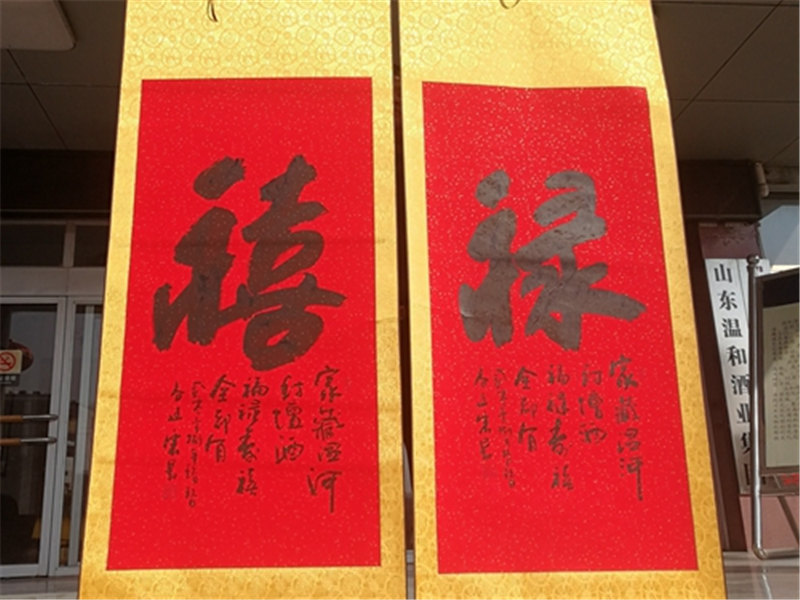 禧
家藏温河
封壇酒
福禄寿禧
全都有
禄
家藏温河
封壇酒
福禄寿禧
全都有
山东温和酒业集团